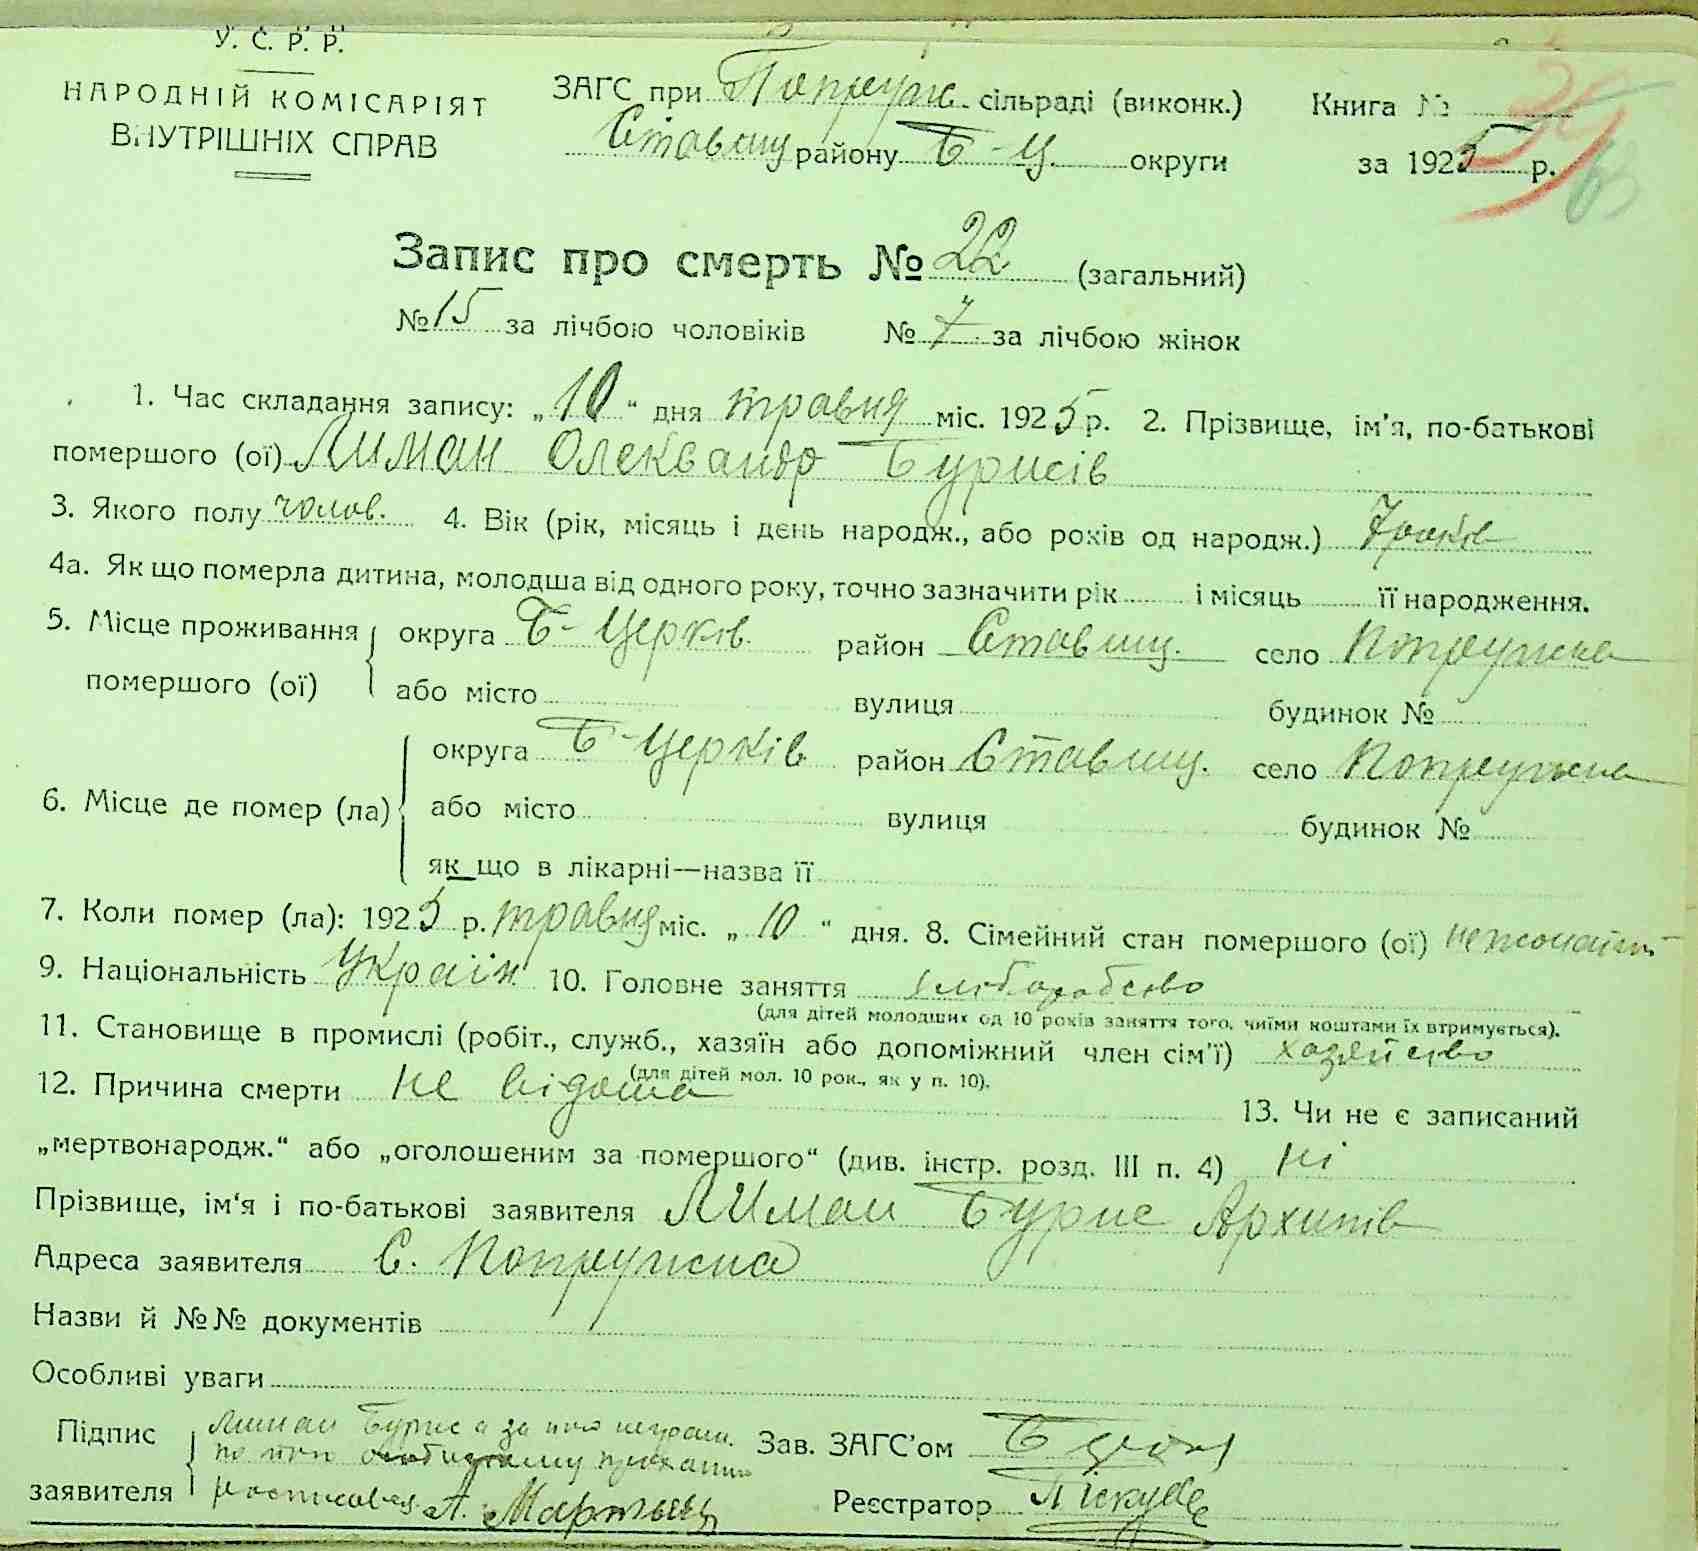 У. С. Р. Р.
НАРОДНІЙ КОМІСАРІЯТ
ВНУТРІШНІХ СПРАВ
ЗАГС при Попруж. сільраді (виконк.)
Ставищ району Б-Ц. округи
Книга №
за 1925 р.
Запис про смерть № 22 (загальний)
№ 15 за лічбою чоловіків № 7 за лічбою жінок
1. Час складання запису: „10“ дня травня міс. 1925 р. 2. Прізвище, ім'я, по-батькові
помершого (ої) Лиман Олександр Бурисів
3. Якого полу чолов. 4. Вік (рік, місяць і день народж., або рохів од народж.) 7 років
4а. Як що померла дитина, молодша від одного року, точно зазначити рік і місяць її народження.
5. Місце проживання помершого (ої) округа Б-Церків. район Ставищ. село Попружна
або місто вулиця будинок №
6. Місце де помер (ла) округа Б-Церків район Ставищ. село Попружна
або місто вулиця будинок №
як що в лікарні—назва її
7. Коли помер (ла): 1925 р. травня міс. „10“ дня. 8. Сімейний стан помершого (ої) нежонатий
9. Національність Україн 10. Головне заняття хліборобство
(для дітей молодших од 10 років заняття того, чиїми коштами їх втримується).
11. Становище в промислі (робіт., служб., хазяїн або допоміжний член сім'ї) хазяйство
(для дітей мол. 10 рок., як у п. 10).
12. Причина смерти не відома 13. Чи не є записаний
„мертвонародж.“ або „оголошеним за помершого“ (див. інстр. розд. III п. 4) ні
Прізвище, ім'я і по-батькові заявителя Лиман Бурис Архипів
Адреса заявителя С. Попружна
Назви й №№ документів
Особливі уваги
Підпис заявителя Лиман Бурис а за його неграм.
по його
росписався А. Мартинец
Зав. ЗАГС'ом
Реєстратор